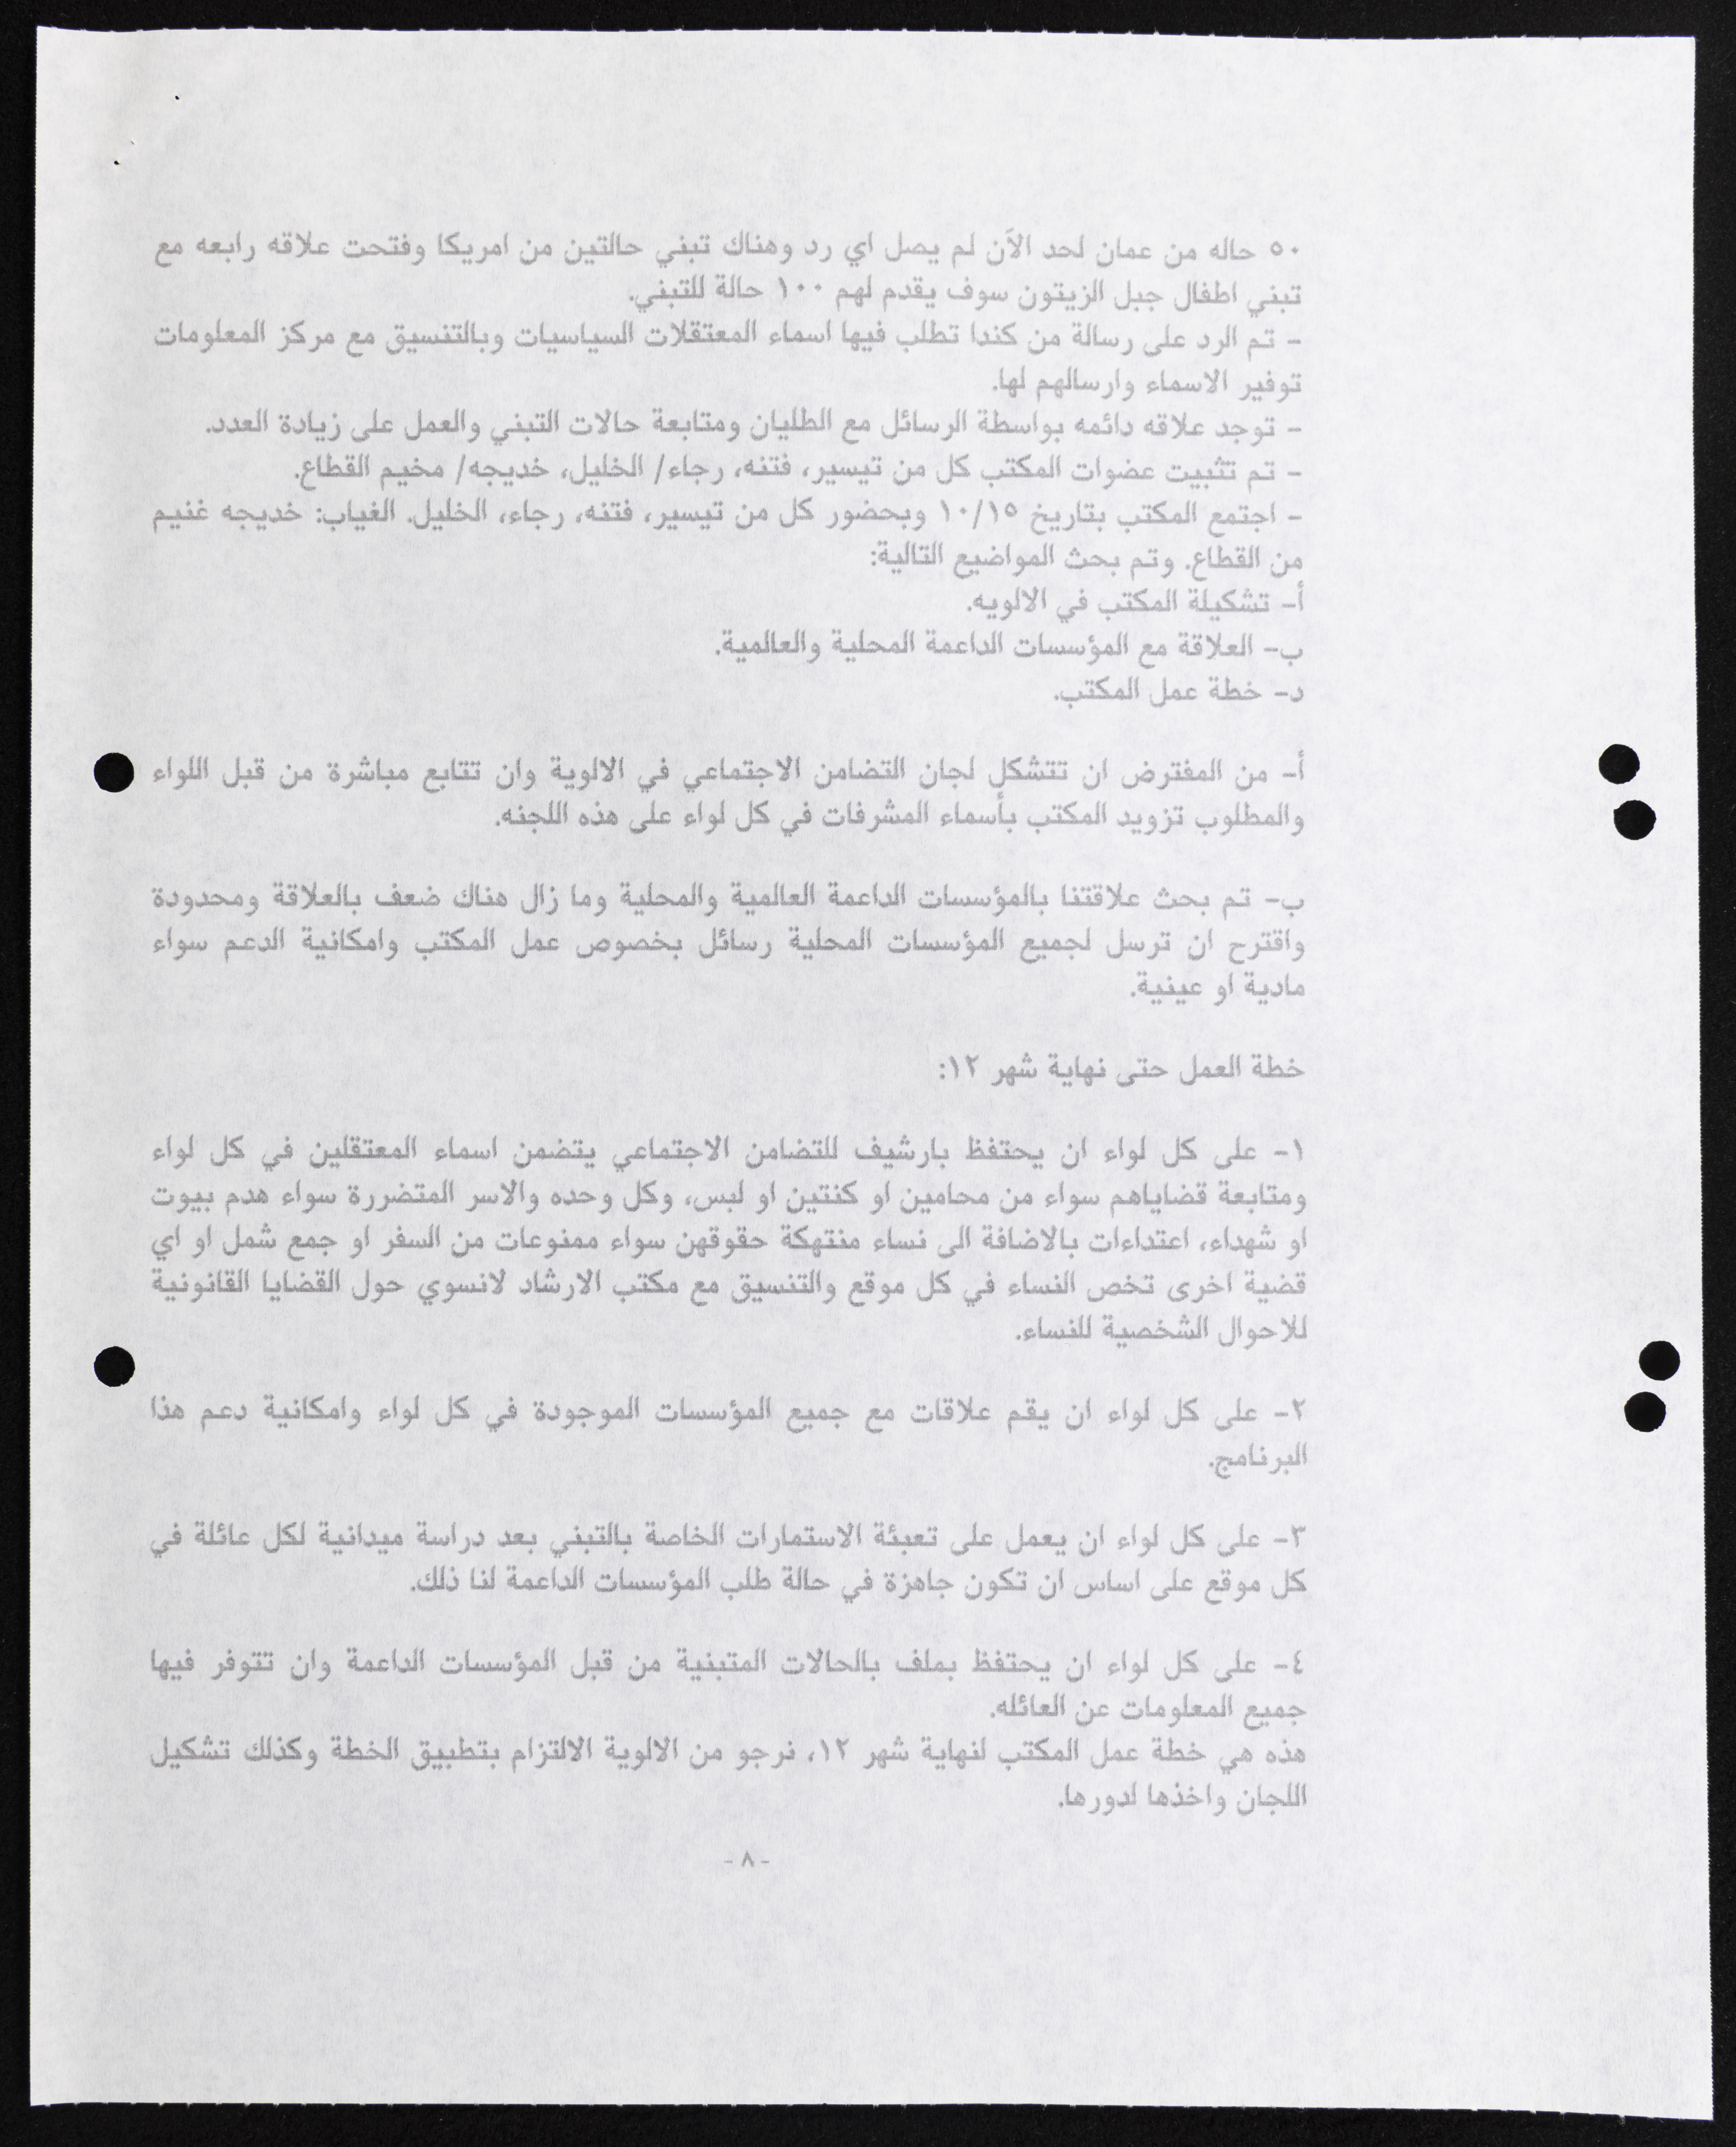 ٥٠ حاله من عمان لحد الآن لم يصل اي رد وهناك تبني حالتين من امريكا وفتحت علاقه رابعه مع
تبني اطفال جبل الزيتون سوف يقدم لهم ١٠٠ حالة للتبني.
- تم الرد على رسالة من كندا تطلب فيها اسماء المعتقلات السياسيات وبالتنسيق مع مركز المعلومات
توفير الاسماء وارسالهم لها.
- توجد علاقه دائمه بواسطة الرسائل مع الطليان ومتابعة حالات التبني والعمل على زيادة العدد.
- تم تثبيت عضوات المكتب كل من تيسير، فتنه، رجاء/ الخليل، خديجه/ مخيم القطاع.
- اجتمع المكتب بتاريخ ١٠/١٥ وبحضور كل من تيسير، فتنه، رجاء، الخليل. الغياب: خديجه غنيم
من القطاع. وتم بحث المواضيع التالية:
أ- تشكيلة المكتب في الالويه.
ب- العلاقة مع المؤسسات الداعمة المحلية والعالمية.
د- خطة عمل المكتب.
أ- من المفترض ان تتشكل لجان التضامن الاجتماعي في الالوية وان تتابع مباشرة من قبل اللواء
والمطلوب تزويد المكتب بأسماء المشرفات في كل لواء على هذه اللجنه.
ب- تم بحث علاقتنا بالمؤسسات الداعمة العالمية والمحلية وما زال هناك ضعف بالعلاقة ومحدودة
واقترح ان ترسل لجميع المؤسسات المحلية رسائل بخصوص عمل المكتب وامكانية الدعم سواء
مادية او عينية.
خطة العمل حتى نهاية شهر ١٢:
١- على كل لواء ان يحتفظ بارشيف للتضامن الاجتماعي يتضمن اسماء المعتقلين في كل لواء
ومتابعة قضاياهم سواء من محامين او كنتين او لبس، وكل وحده والاسر المتضررة سواء هدم بيوت
او شهداء، اعتداءات بالاضافة الى نساء منتهكة حقوقهن سواء ممنوعات من السفر او جمع شمل او اي
قضية اخرى تخص النساء في كل موقع والتنسيق مع مكتب الارشاد لانسوي حول القضايا القانونية
للاحوال الشخصية للنساء.
٢- على كل لواء ان يقم علاقات مع جميع المؤسسات الموجودة في كل لواء وامكانية دعم هذا
البرنامج.
٣- على كل لواء ان يعمل على تعبئة الاستمارات الخاصة بالتبني بعد دراسة ميدانية لكل عائلة في
كل موقع على اساس ان تكون جاهزة في حالة طلب المؤسسات الداعمة لنا ذلك.
٤- على كل لواء ان يحتفظ بملف بالحالات المتبنية من قبل المؤسسات الداعمة وان تتوفر فيها
جميع المعلومات عن العائله.
هذه هي خطة عمل المكتب لنهاية شهر ١٢، نرجو من الالوية الالتزام بتطبيق الخطة وكذلك تشكيل
اللجان واخذها لدورها.
-٨-